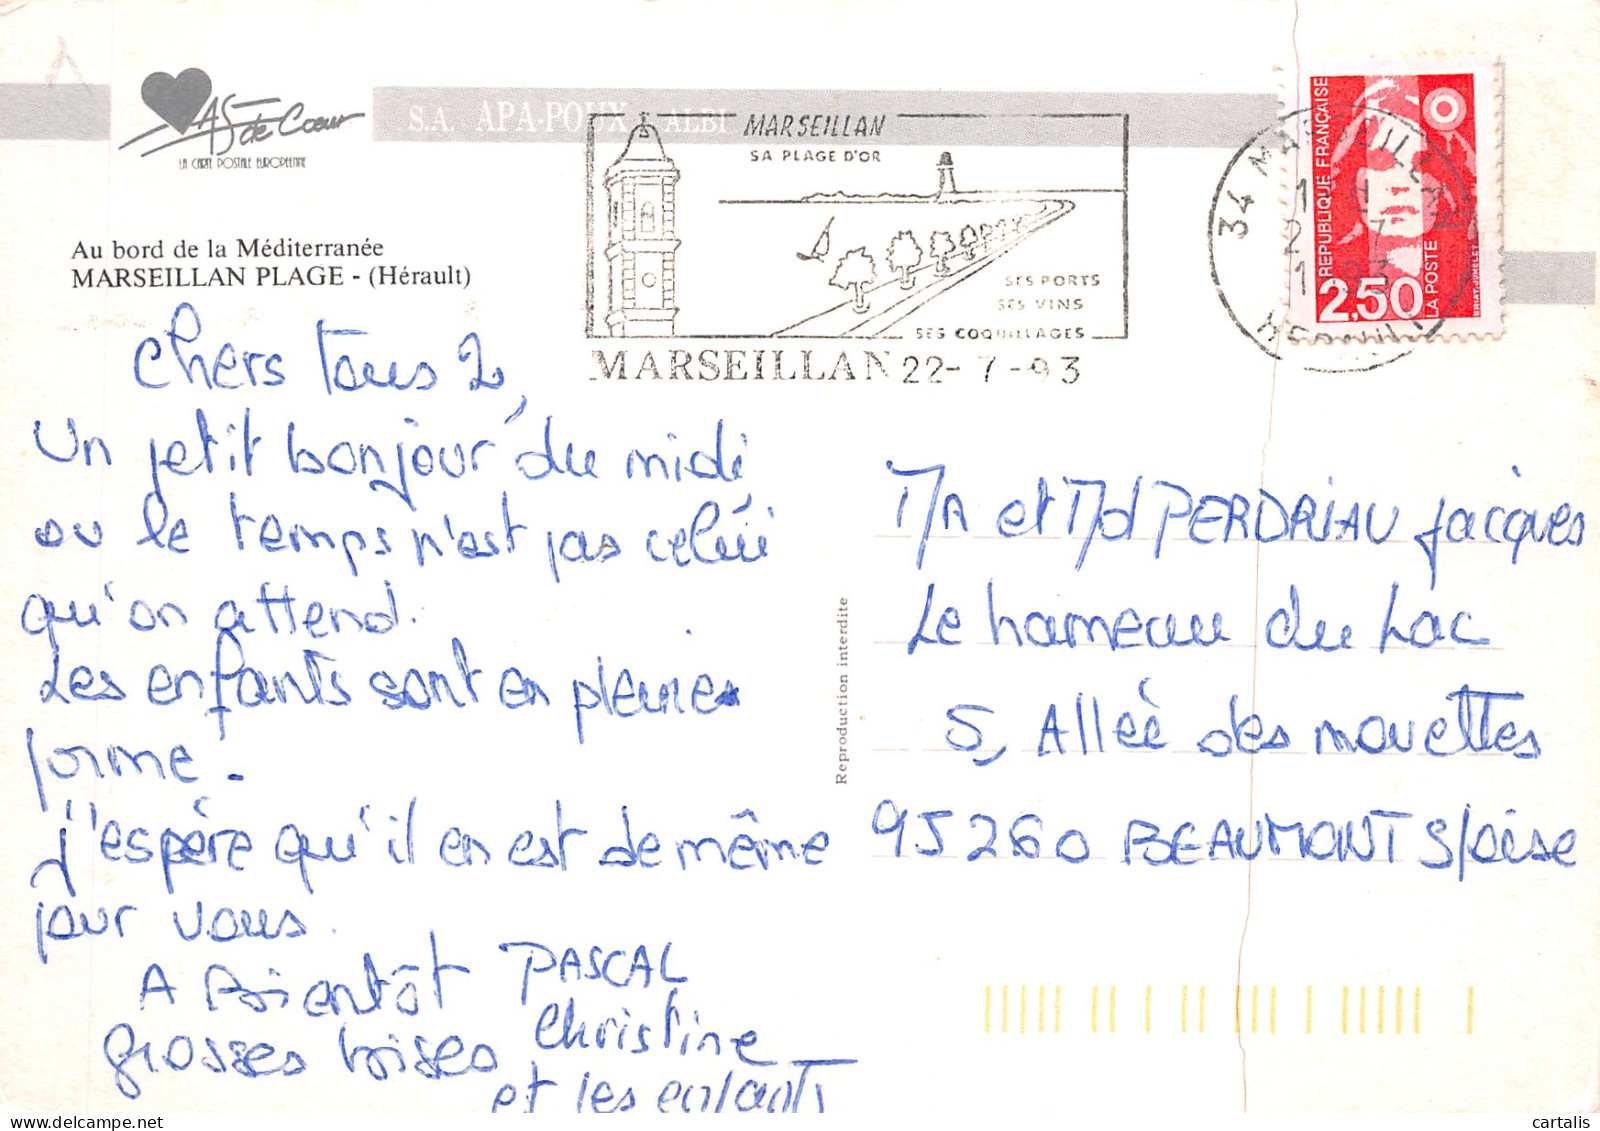 AS de Cœur
LA CARTE POSTALE EUROPÉENNE
S.A. APA-POUX - ALBI
Au bord de la Méditerranée
MARSEILLAN PLAGE - (Hérault)
MARSEILLAN
SA PLAGE D'OR
SES PORTS
SES VINS
SES COQUILLAGES
MARSEILLAN 22-7-93
34 MARSEILLAN
HERAULT
REPUBLIQUE FRANÇAISE
2,50
LA POSTE
BRIAT-JUMELET
chers tous 2,
Un petit bonjour du midi
ou le temps n'est pas celui
qu'on attend.
Les enfants sont en pleine
forme.
J'espère qu'il en est de même
pour vous.
A Bientôt PASCAL
grosses bises Christine
et les enfants
Reproduction interdite
Mr et Md PERDRIAU jacques
Le hameau du Lac
5, Allée des mouettes
95260 BEAUMONT S/oise
cartalis